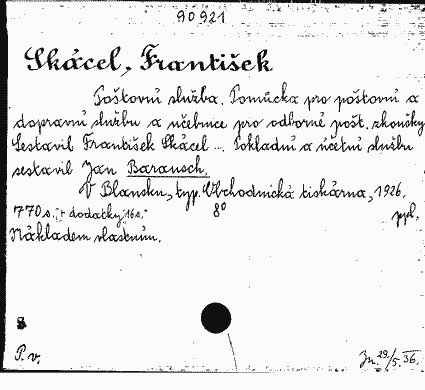 90921
Skácel, František
Poštovní služba. Pomůcka pro poštovní a
dopravní službu a učebnice pro odborné pošt. zkoušky
Sestavil František Skácel ... Pokladní a účetní službu
sestavil Jan Baransch.
V Blansku, typ. Obchodnická tiskárna, 1926.
770 s. + dodatky 16 s. 8° ppl.
Nákladem vlastním.
8
P. v. Zn. 29/5. 36.